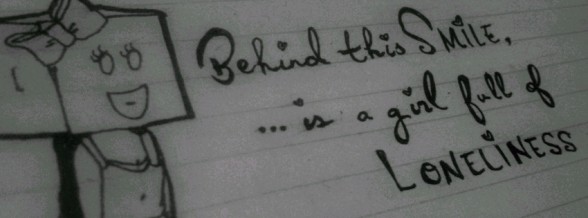 Behind this SMILE,
... is a girl full of
LONELINESS